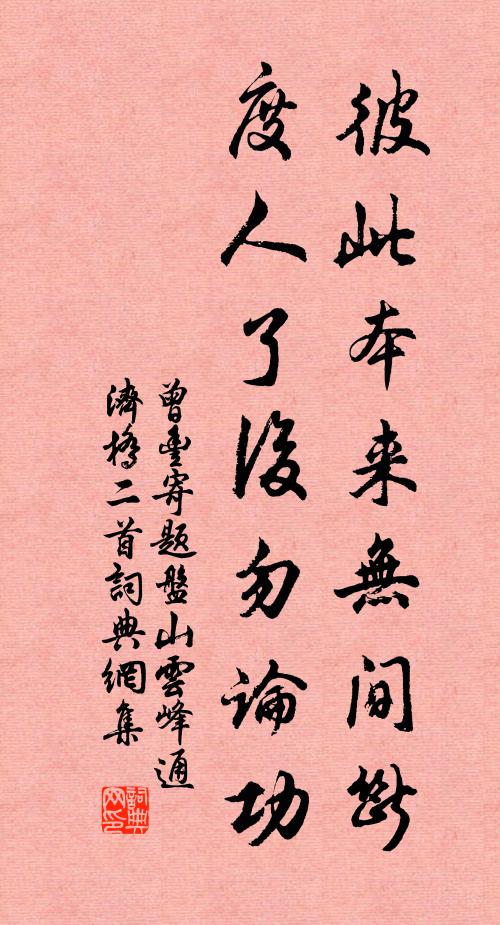 彼此本来無間斷
度人了後勿論功
曾豐寄題盤山雲峰通
濟橋二首詞典網集
詞典
网印